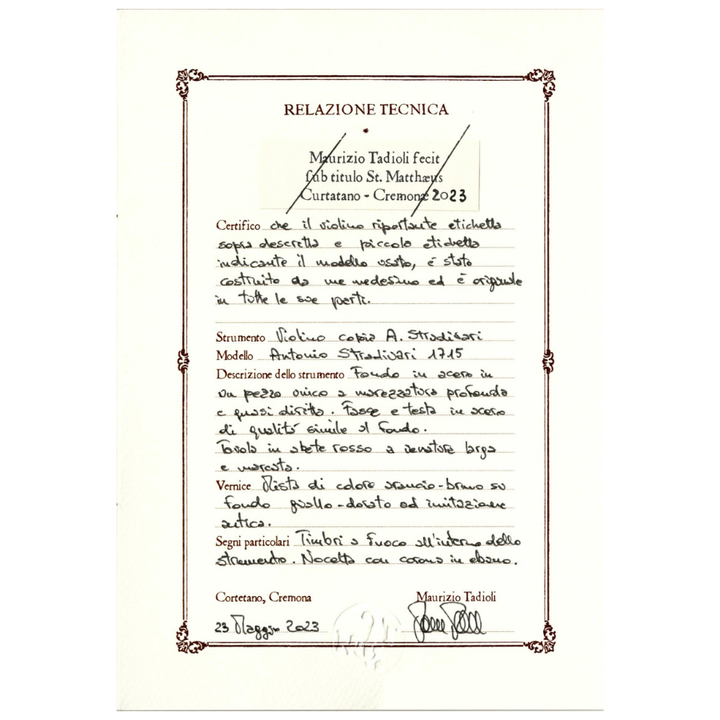 RELAZIONE TECNICA
Maurizio Tadioli fecit
sub titulo St. Matthæus
Curtatano - Cremonæ 2023
Certifico che il violino riportante etichetta
sopra descritta e piccola etichetta
indicante il modello usato, è stato
costruito da me medesimo ed è originale
in tutte le sue parti.
Strumento Violino copia A. Stradivari
Modello Antonio Stradivari 1715
Descrizione dello strumento Fondo in acero in
un pezzo unico a marezzatura profonda
e quasi diritta. Fasce e testa in acero
di qualità simile al fondo.
Tavola in abete rosso a venatura larga
e marcata.
Vernice Mista di colore arancio-bruno su
fondo giallo-dorato ad imitazione
antica.
Segni particolari Timbri a fuoco all'interno dello
strumento. Nocetta con corona in ebano.
Cortetano, Cremona
Maurizio Tadioli
23 Maggio 2023